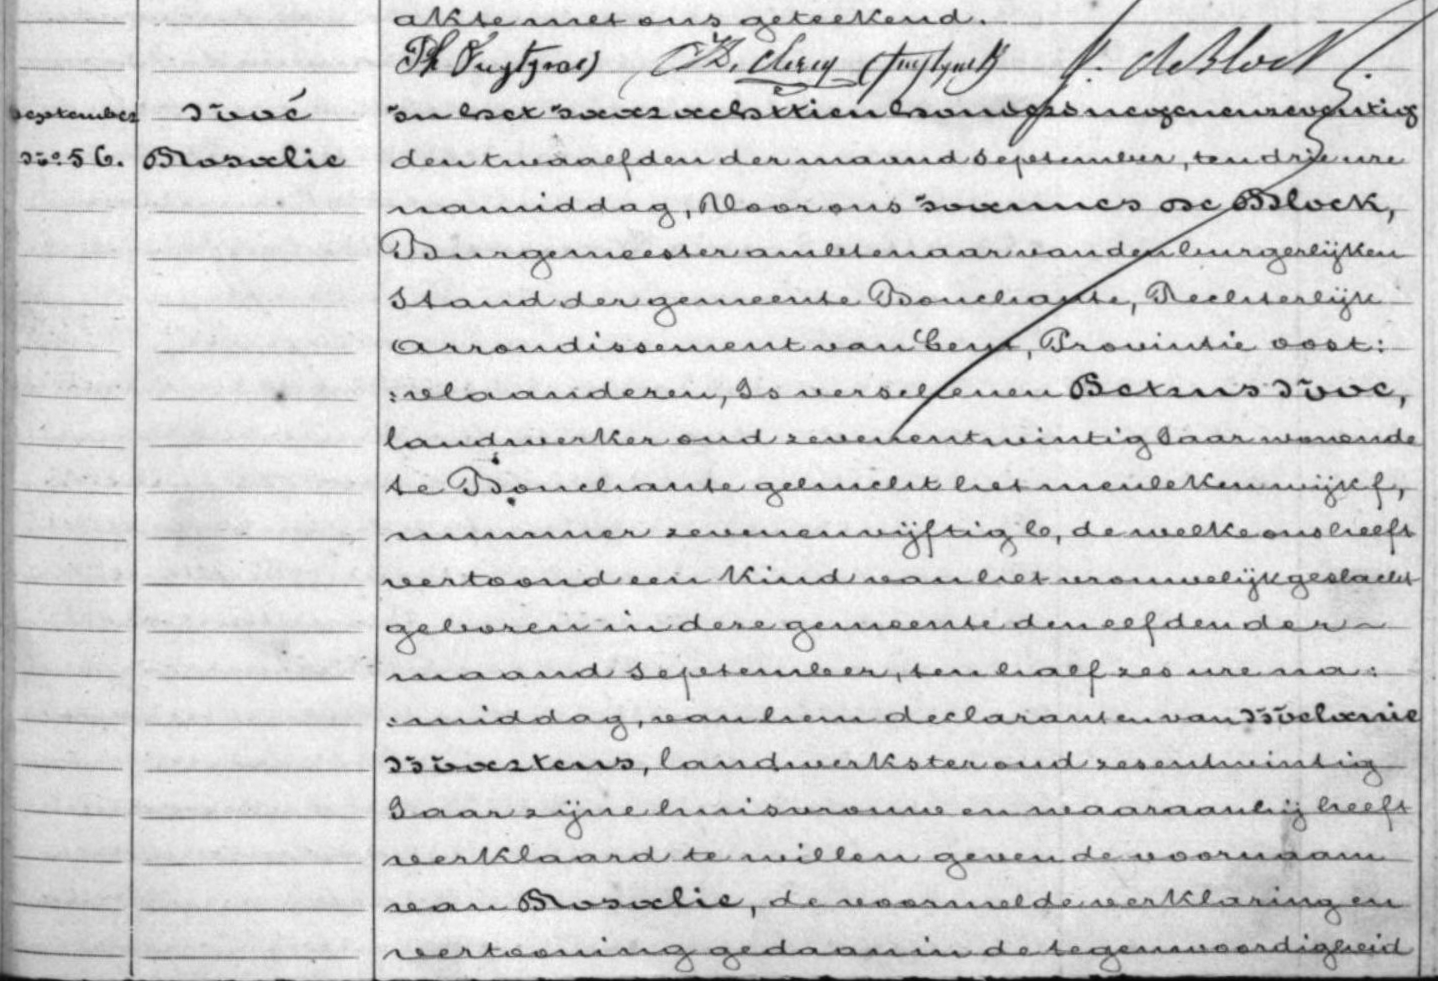 akte met ons geteekend.
de Block
September Nové In het Jaar achttien honderd negenenzeventig
No 56. Rosalie den twaalfden der maand September, ten drie ure
namiddag, Voor ons Joannes De Block,
Burgemeester ambtenaar van den burgerlijken
Stand der gemeente Bouchaute, Rechterlijk
Arrondissement van Gent, Provintie oost:
:vlaanderen, Is verschenen Petrus Nové,
landwerker oud zevenentwintig Jaar wonende
te Bouchaute gehucht het meuleken wijk f,
nummer zevenenvijftig b, de welke ons heeft
vertoond een Kind van het vrouwelijk geslacht
geboren in deze gemeente den elfden der
maand September, ten half zes ure na:
:middag, van hem declarant en van Melanie
Martens, landwerkster oud zesentwintig
Jaar zijne huisvrouw en waaraan hij heeft
verklaard te willen geven de voornaam
van Rosalie, de voormelde verklaring en
vertooning gedaan in de tegenwoordigheid